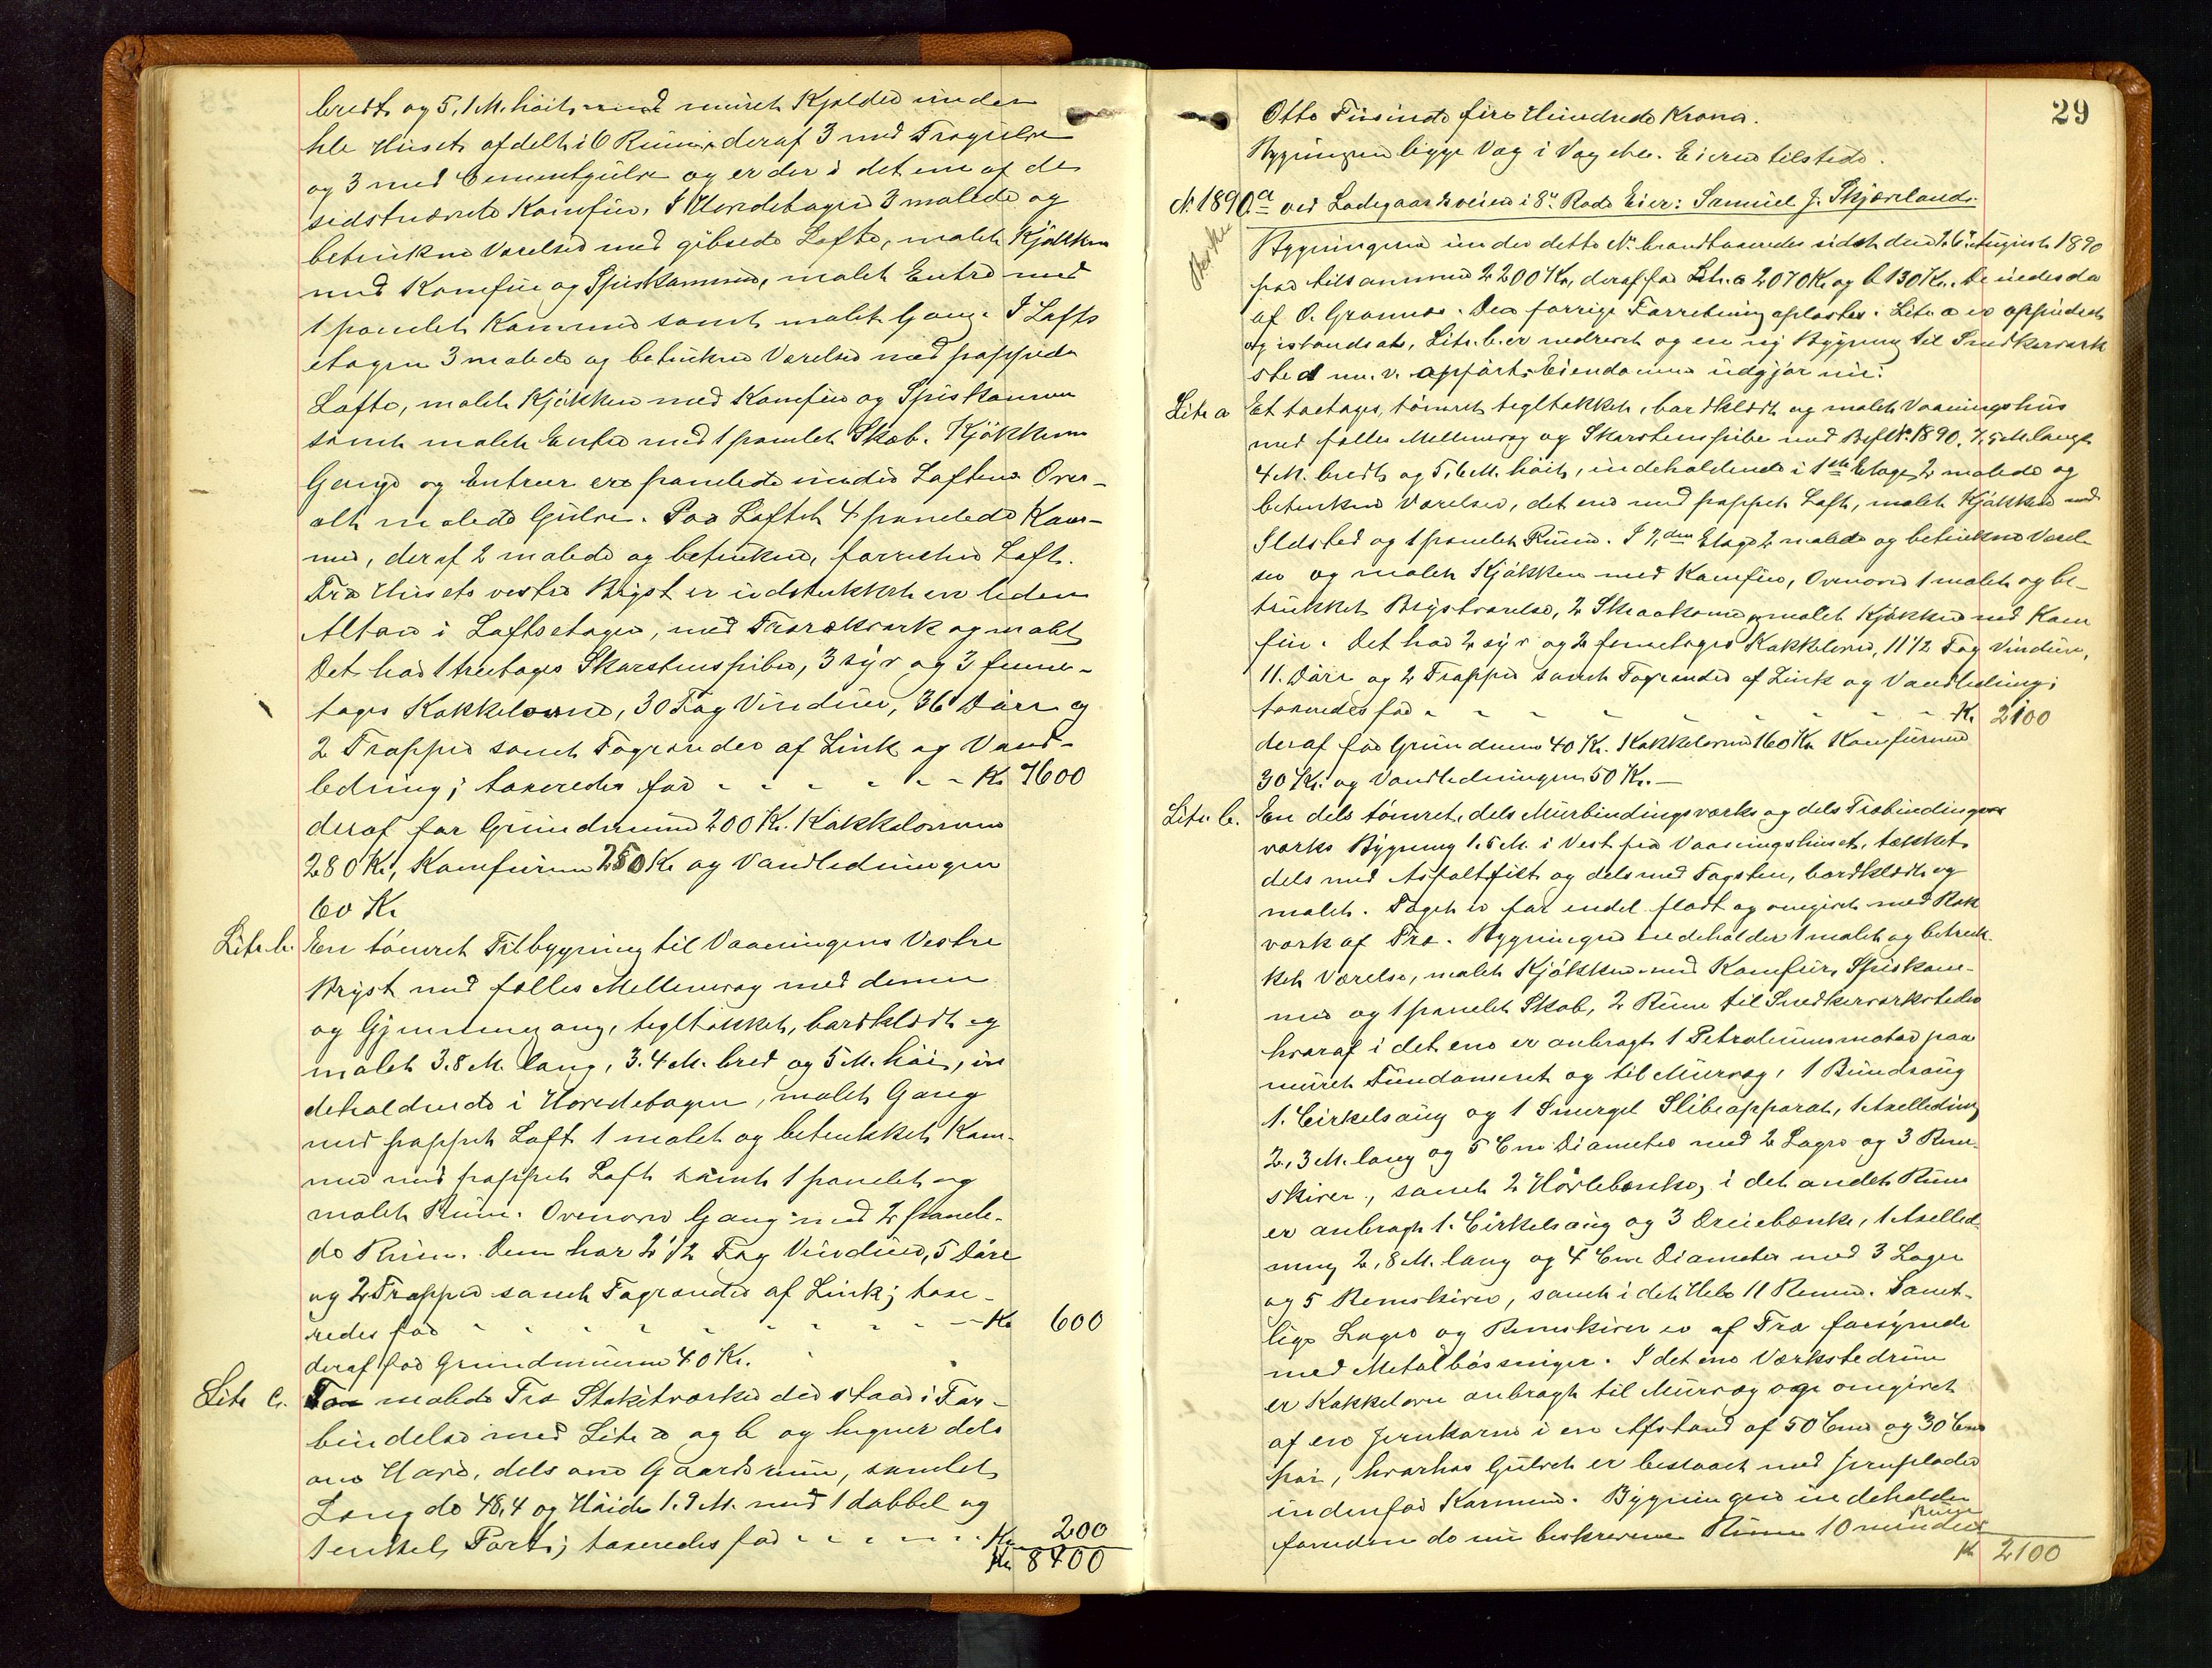 bredt og 5,1 M. høit med muret Kjelder under
hle Huset afdelt i 6 Rum, deraf 3 med Trægulve
og 3 med Cementgulve og er der i det ene af de
sidstnævnte Komfur. I Hovedetagen 3 malede og
betrukne Værelser med gibsede Lofte, malet Kjøkken
med Komfur og Spiskammer, malet Entre med
1 panelet Kammer samt malet Gang. I Lofts
etagen 3 malede og betrukne Værelser med pappede
Lofte, malet Kjøkken med Komfur og Spiskammer
samt malet Entre med 1 panelet Skab. Kjøkkener
Gange og Entreer ere panelede under Loftene Over-
alt malede Gulve. Paa Loftet 4 panelede Kam-
mer, deraf 2 malede og betrukne, forresten Loft.
Fra Husets vestre Bryst er udstukket en liden
Altan i Loftsetagen, med Trærækværk og malet
Det har 1 treetages Skorstenspibe, 3 syv og 3 feme-
tages Kakkelovne, 30 Fag Vinduer, 36 Døre og
2 Trapper samt Tagrender af Zink og Vand-
ledning; taxeredes for - - - - - - Kr. 7600
deraf for Grundmuren 200 Kr. Kakkelovnene
280 Kr., Komfurene 250 Kr. og Vandledningen
60 Kr.
Litr. b. En tømret Tilbygning til Vaaningens Vestre
Bryst med fælles Mellemvæg med denne
og Gjennemgang, tegltækket, bordklædt og
malet 3.8 M. lang, 3.4 M. bred og 5 M. høi, in
deholdende i Hovedetagen, malet Gang
med pappet Loft 1 malet og betrukket Kam-
mer med pappet Loft samt 1 panelet og
malet Rum. Ovenover Gang med 2 panele-
de Rum. Den har 2 1/2 Fag Vinduer, 5 Døre
og 2 Trapper samt Tagrender af Zink; taxe-
redes for - - - - - - - - - Kr. 600
deraf for Grundmuren 40 Kr.
Litr. c. malede Træ Stakitværker der staar i For-
bindelse med Litr. a og b og hegner dels
om Have, dels om Gaardsrum, samlet
Længde 48,4 og Høide 1.9 M. med 1 dobbel og
1 enkel Port; taxeredes for - - - - - - Kr. 200
Kr. 8400
29
Otte Tusinde fire Hundrede Kroner.
Bygningerne ligge Væg i Væg etc. Eieren tilstede.
N. 1890.a ved Ladegaardsveien i 8de Rode Eier: Samuel J. Skjæveland.
Bygningerne under dette No. brandtaxeredes sidst den 26. August 1890
for tilsammen 2200 Kr, deraf for Litr. a 2070 Kr. og b 130 Kr. De eiedes da
af O. Grønnes. Den forrige Forretning oplæstes. Litr. a er oppudset
og istandsat, Litr. b. er nedrevet og en ny Bygning til Snedkerværk
sted m. v. opført. Eiendommen udgjør nu:
Litr a Et toetages, tømret tegltækket, bordklædt og malet Vaaningshus
med fælles Mellemvæg og Skorstenspibe med No. 1890. 7,5 M. langt
4 M. bredt og 5,6 M. høit, indeholdende i 1ste Etage 2 malede og
betrukne Værelser, det ene med pappet Loft, malet Kjøkken med
Ildsted og 1 panelet Rum. I 2den Etage 2 malede og betrukne Værel
ser og malet Kjøkken med Komfur, Ovenover 1 malet og be-
trukket Brystværelse, 2 Skraakammer og malet Kjøkken med Kom
fur. Det har 2 syv og 2 femetages Kakkelovne, 11 1/2 Fag Vinduer,
11. Døre og 2 Trapper samt Tagrender af Zink og Vandledning;
taxeredes for - - - - - - - - - Kr. 2100
deraf for Grundmuren 40 Kr. Kakkelovnene 160 Kr. Komfurene
30 Kr. og Vandledningen 50 Kr. -
Litr. b. En dels tømret, dels Murbindingsværks og dels Træbindings
værks Bygning 1.5 M. i Vest for Vaaningshuset, tækket
dels med Asfaltfilt og dels med Tagsten, bordklædt og
malet. Taget er for endel fladt og omgivet med Ræk
værk af Træ. Bygningen indeholder 1 malet og betruk-
ket Værelse, malet Kjøkken med Komfur, Spiskam-
mer og 1 panelet Skab, 2 Rum til Snedkerværksteder
hvoraf i det ene er anbragt 1 Petroleumsmotor paa
muret Fundament og til Murvæg, 1 Baandsaug
1. Cirkelsaug og 1 Smergel Slibeapparat, 1 Axelledning
2,3 M. lang og 5 Cm Diameter med 2 Lager og 3 Rem-
skiver, samt 2 Høvlebænke, i det andet Rum
er anbragt 1. Cirkelsaug og 3 Dreiebænke, 1 Axelled-
ning 2,8 M. lang og 4 Cm Diameter med 3 Lager
og 5 Remskiver, samt i det Hele 11 Remme. Samt-
lige Lager og Remskiver er af Træ forsynede
med Metalbøsninger. I det ene Værkstedrum
er Kakkelovn anbragt til Murvæg og omgivet
af en Jernkarm i en Afstand af 50 Cm og 30 Cm
høi, hvorhos Gulvet er beslaaet med Jernplader
indenfor Karmen. Bygningen indeholder
foruden de nu beskrevne Rum 10 mindre Rum
Kr. 2100